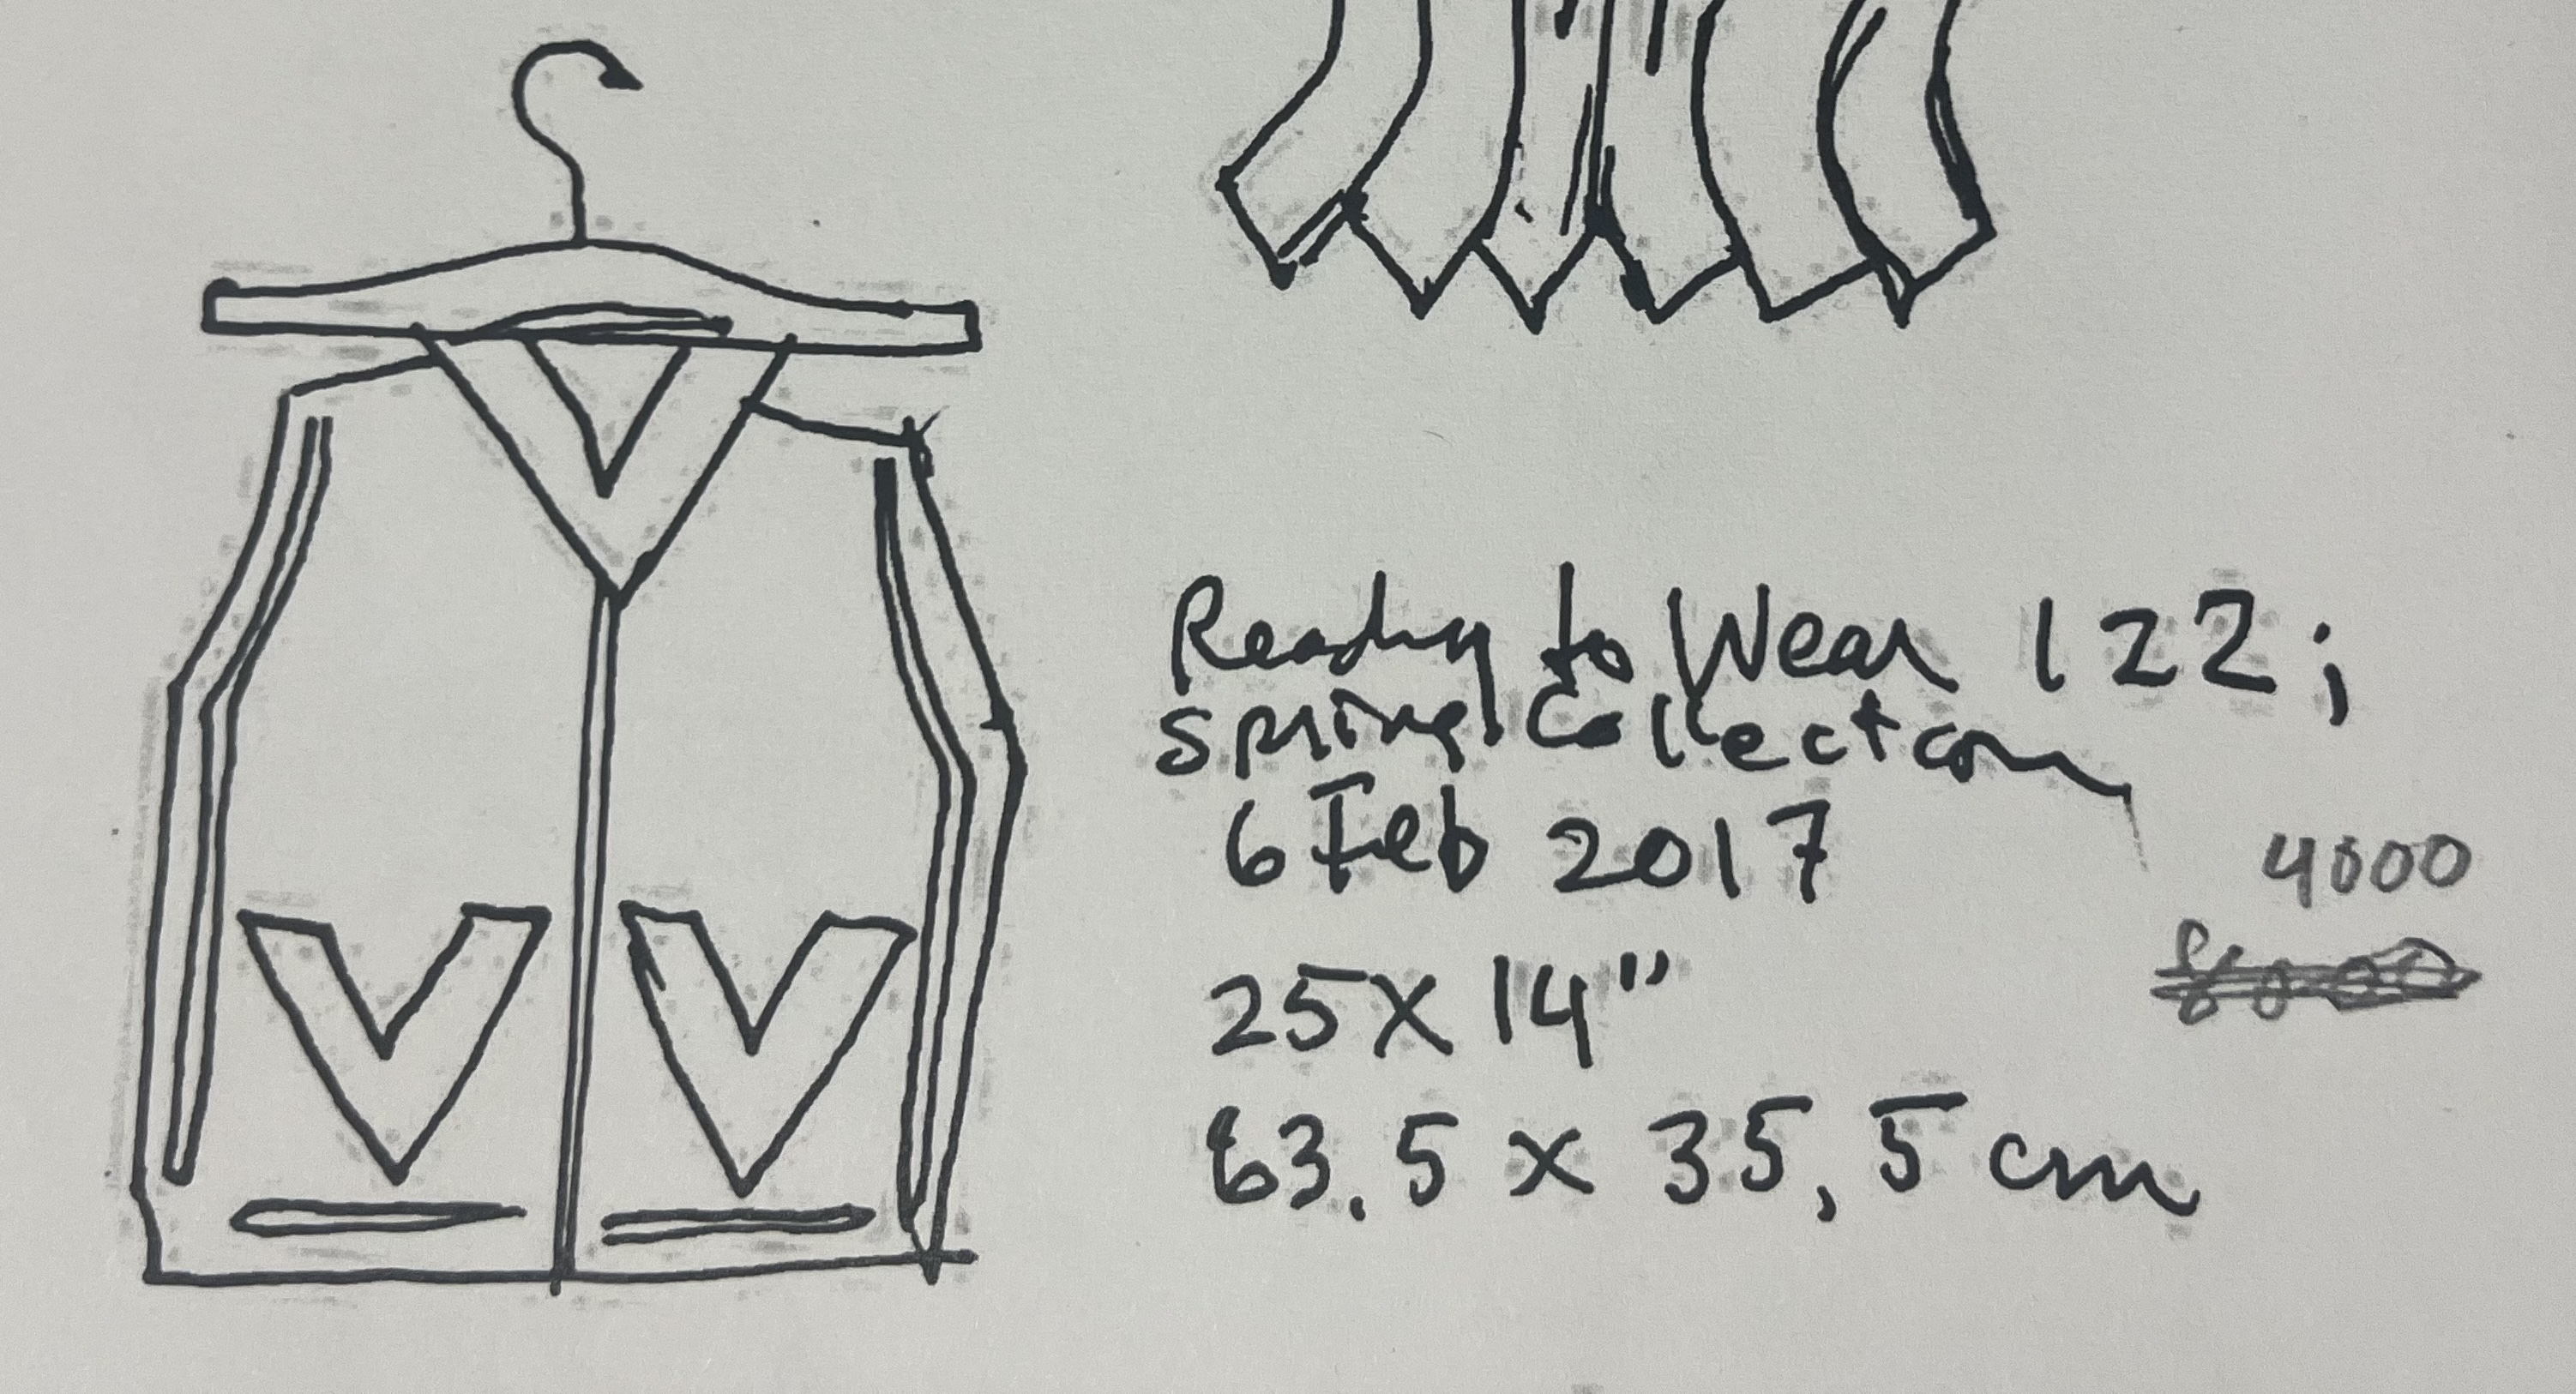 Ready to Wear 122;
Spring Collection
6 Feb 2017
4000
25 x 14"
63.5 x 35,5 cm